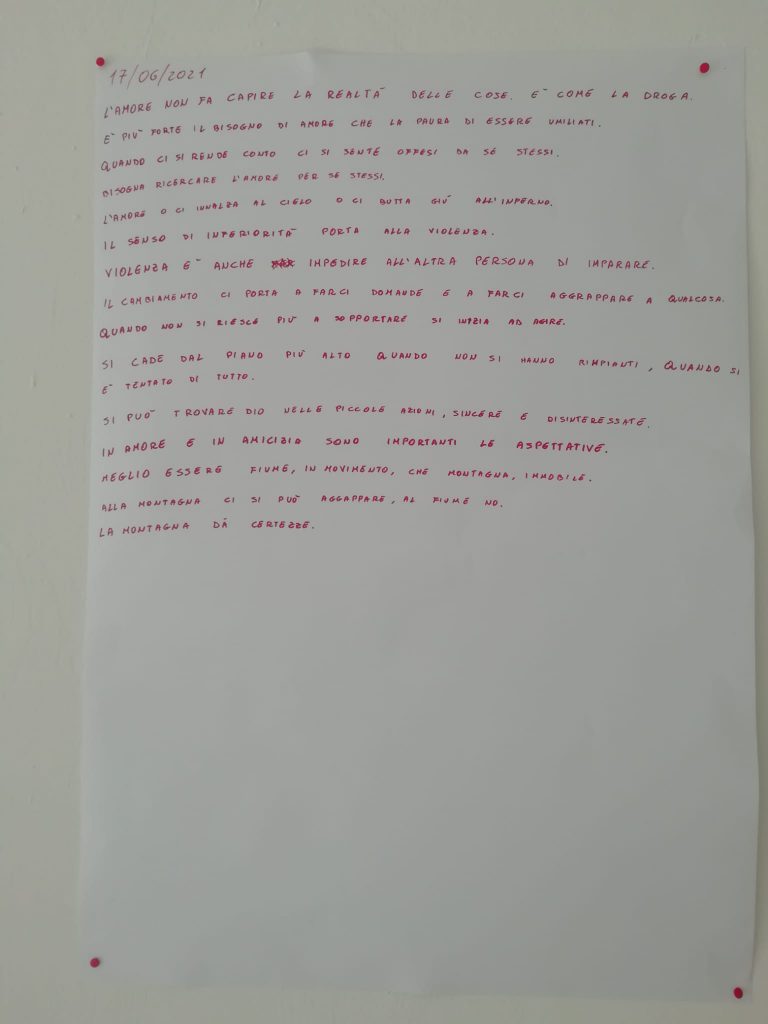 17/06/2021
L'AMORE NON FA CAPIRE LA REALTÀ DELLE COSE. E' COME LA DROGA.
E' PIU' FORTE IL BISOGNO DI AMORE CHE LA PAURA DI ESSERE UMILIATI.
QUANDO CI SI RENDE CONTO CI SI SENTE OFFESI DA SE STESSI.
BISOGNA RICERCARE L'AMORE PER SE STESSI.
L'AMORE O CI INNALZA AL CIELO O CI BUTTA GIÙ ALL'INFERNO.
IL SENSO DI INFERIORITÀ PORTA ALLA VIOLENZA.
VIOLENZA E' ANCHE IMPEDIRE ALL'ALTRA PERSONA DI IMPARARE.
IL CAMBIAMENTO CI PORTA A FARCI DOMANDE E A FARCI AGGRAPPARE A QUALCOSA.
QUANDO NON SI RIESCE PIÙ A SOPPORTARE SI INIZIA AD AGIRE.
SI CADE DAL PIANO PIÙ ALTO QUANDO NON SI HANNO RIMPIANTI, QUANDO SI
E' TENTATO DI TUTTO.
SI PUÒ TROVARE DIO NELLE PICCOLE AZIONI, SINCERE E DISINTERESSATE.
IN AMORE E IN AMICIZIA SONO IMPORTANTI LE ASPETTATIVE.
MEGLIO ESSERE FIUME, IN MOVIMENTO, CHE MONTAGNA, IMMOBILE.
ALLA MONTAGNA CI SI PUÒ AGGAPPARE, AL FIUME NO.
LA MONTAGNA DÀ CERTEZZE.